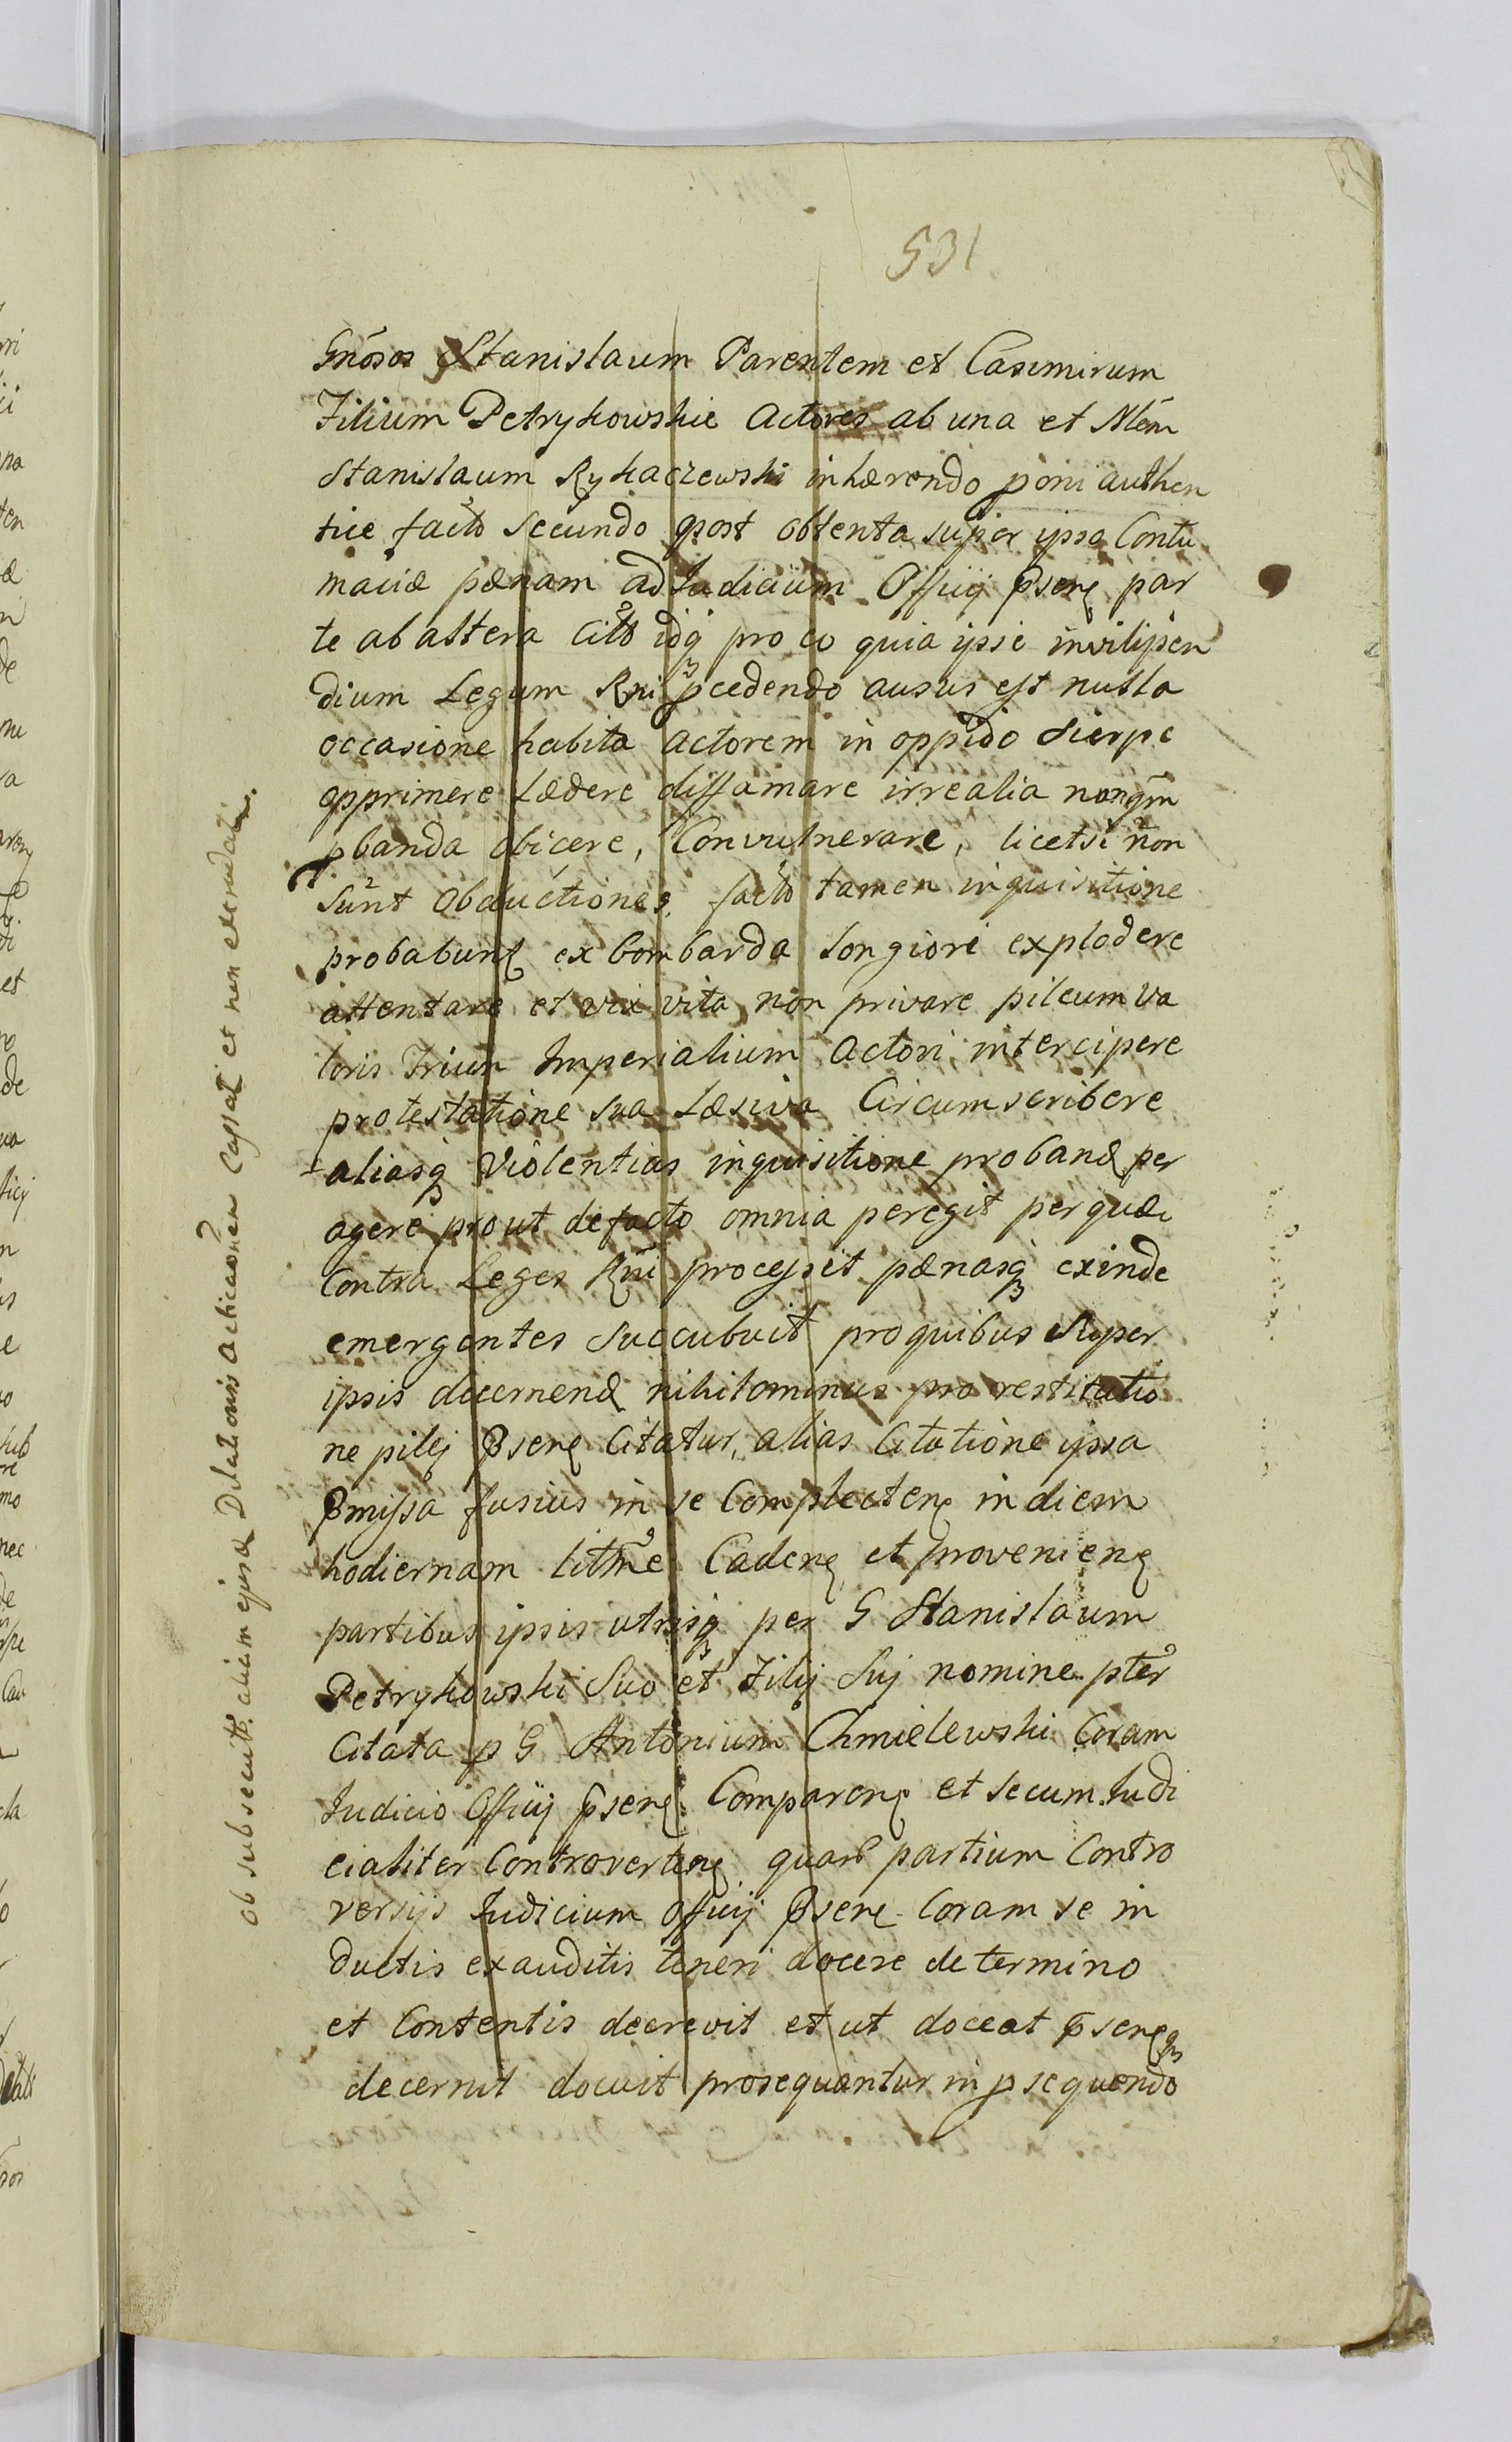 531
Gnôsos Stanislaum Parentem et Casimirum
Filium Petrykowskie Actores ab una et Nlêm
Stanislaum Rykaczewski inhærendo poni authen
tice facto secundo post obtenta super ipso Contu
maciæ pænam ad Judicium Officij Psenę par
te ab altera Citô idq pro eo quia ipse invilipen
dium Legum Rni pcedendo ausus est nulla
occasione habita actorem in oppido Sierpc
opprimere Lædere diffamare irrealia nonqm
pbanda obicere, Convulnerare, licetsi non
sunt Obductiones, facto tamen inquisitione
probabunt ex bombarda longiori explodere
attentare et vix vita non privare pileum va
loris Trium Imperialium Actori intercipere
protestatione sua Læsiva Circumscribere
aliasq Violentias inquisitione proband per
agere prout defacto omnia peregit per quæ
Contra Leges Rni processit pænasq exinde
emergentes succubuit pro quibus super
ipsis decernend nihilominus pro restitutio
ne pilej Psenę Citatur, alias Citatione ipsa
Pmissa fusius in se Complectenę in diem
hodiernam litme Cadenę et provenienę
partibus ipsis utrisq per G Stanislaum
Petrykowski Suo et Filij Sui nomine pter
Citata p G Antonium Chmielewski Coram
Judicio Officij Psenę Comparenę et secum Judi
cialiter Controvertenę quarû partium Contro
versijs Judicium Officij Psenę Coram se in
ductis exauditis teneri docere de termino
et Contentis decrevit et ut doceat Psenęq
decernit docuit prosequantur in psequendo
ob subsecutâ aliam ejusd Dilationis acticaônem Cassat et non extradatur.